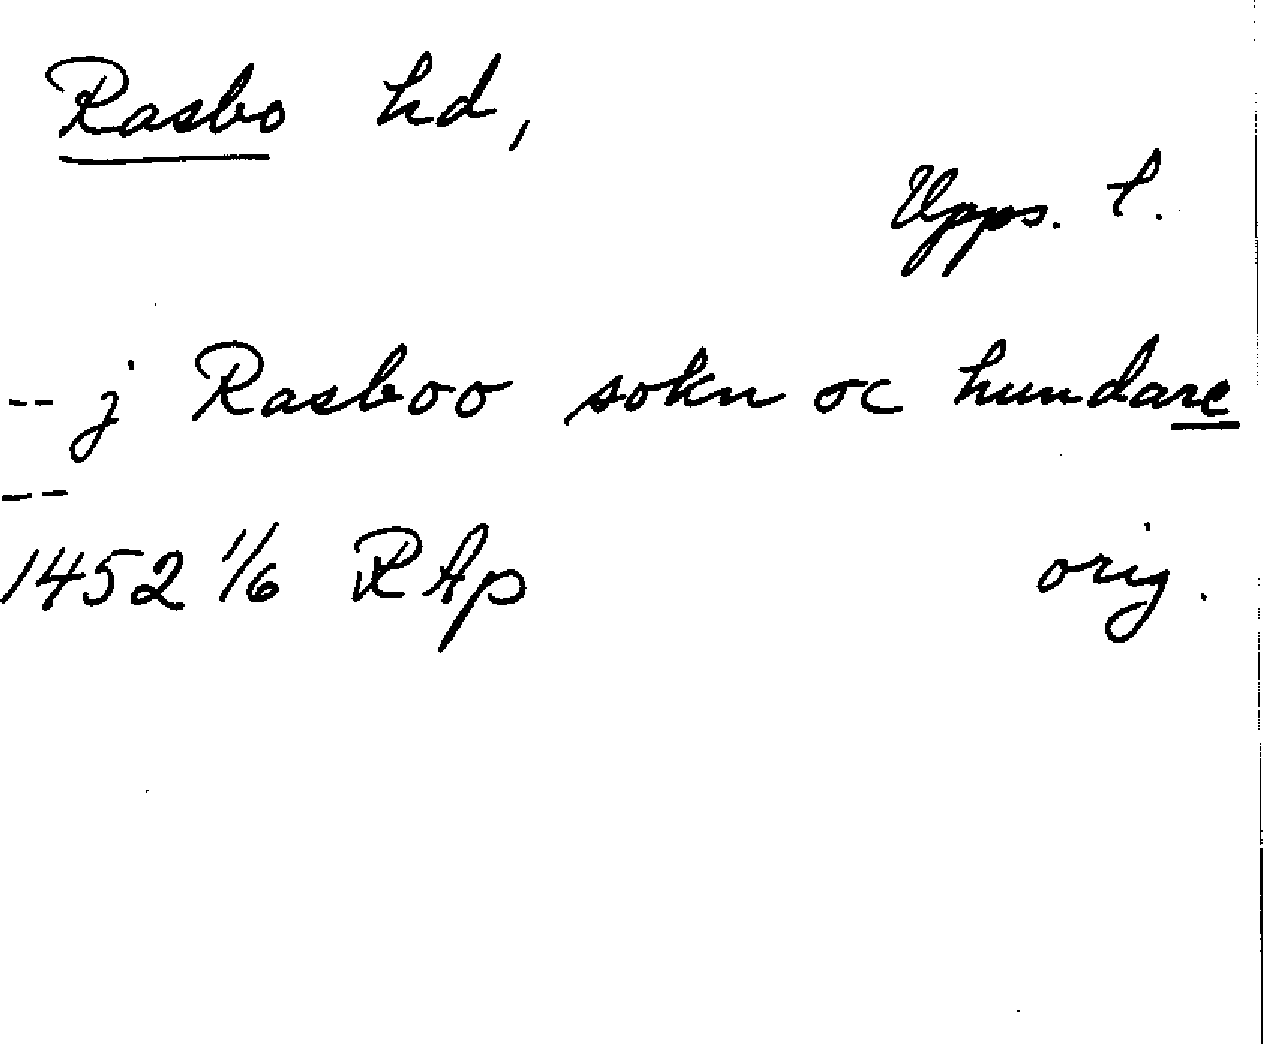 Rasbo hd,
Upps. l.
-- j Rasboo sokn oc hundare
--
1452 1/6 RAp orig.